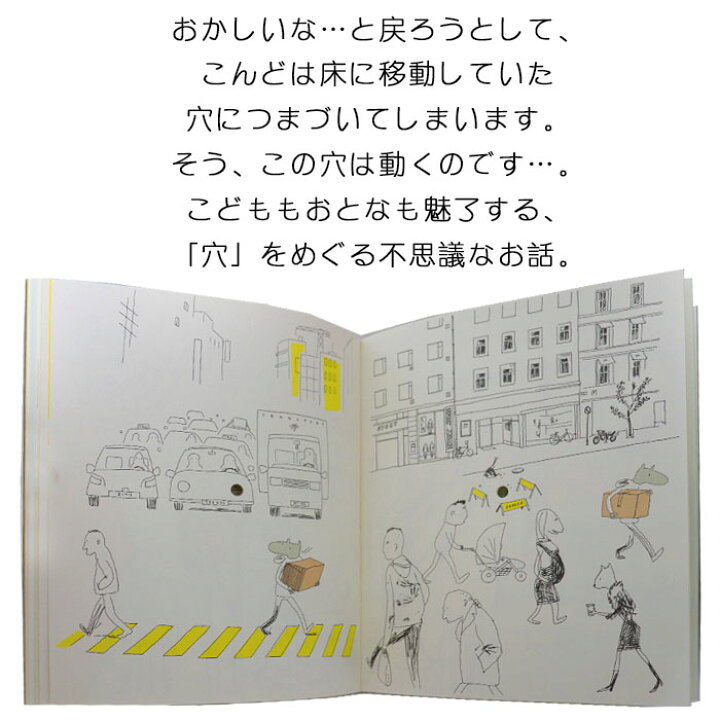 おかしいな…と戻ろうとして、
こんどは床に移動していた
穴につまづいてしまいます。
そう、この穴は動くのです…。
こどももおとなも魅了する、
「穴」をめぐる不思議なお話。